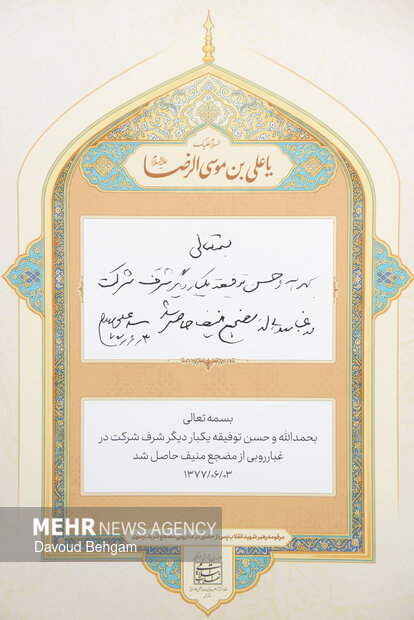 السلام علیک
یا علی بن موسی الرضا علیه السلام
بسمه تعالی
بحمدالله و حسن توفیقه یکبار دیگر شرف شرکت
در غبارروبی از مضجع منیف حاصل شد
بسمه تعالی
بحمدالله و حسن توفیقه یکبار دیگر شرف شرکت در
غبارروبی از مضجع منیف حاصل شد
۱۳۷۷/۰۶/۰۳
MEHR NEWS AGENCY
Davoud Behgam